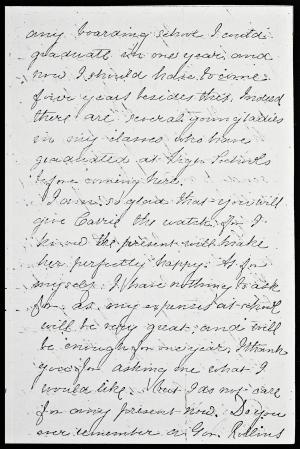 any boarding school I could
graduate in one year, and
now I should have to come
five years besides this. Indeed
there are several young ladies
in my classes who have
graduated at High Schools
before coming here.
I am so glad that you will
give Carrie the watch, for I
know the present will make
her perfectly happy. As for
myself I have nothing to ask
for as my expenses at school
will be very great, and will
be enough for one year. I thank
you for asking me what I
would like. but I do not care
for any present now. Do you
ever remember a Gen. Rollins